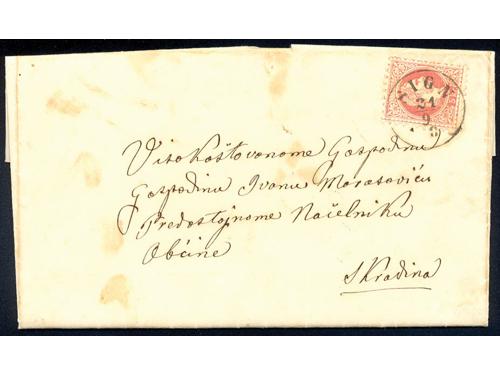 SIGN
21
9
Visokoštovonome Gospodinu
Gospodinu Ivanu Marasoviću
Predostojnome Načelniku
Občine
Skradina